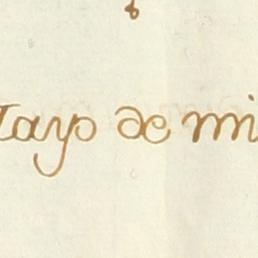 Mayo de mi